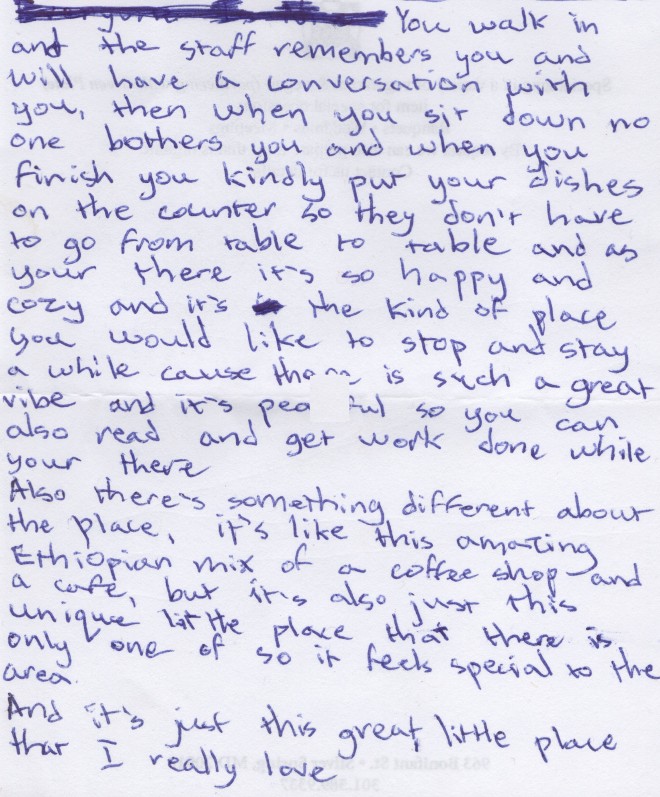 You walk in
and the staff remembers you and
will have a conversation with
you, then when you sit down no
one bothers you and when you
finish you kindly put your dishes
on the counter so they don't have
to go from table to table and as
your there it's so happy and
cozy and it's the kind of place
you would like to stop and stay
a while cause is such a great
vibe and it's so you can
also read and get work done while
your there
Also there's something different about
the place, it's like this amazing
Ethiopian mix of a coffee shop and
a cafe, but it's also just this
unique little place that there is
only one of so it feels special to the
area.
And it's just this great little place
that I really love
963 Bonifant St. • Silver Spring, MD